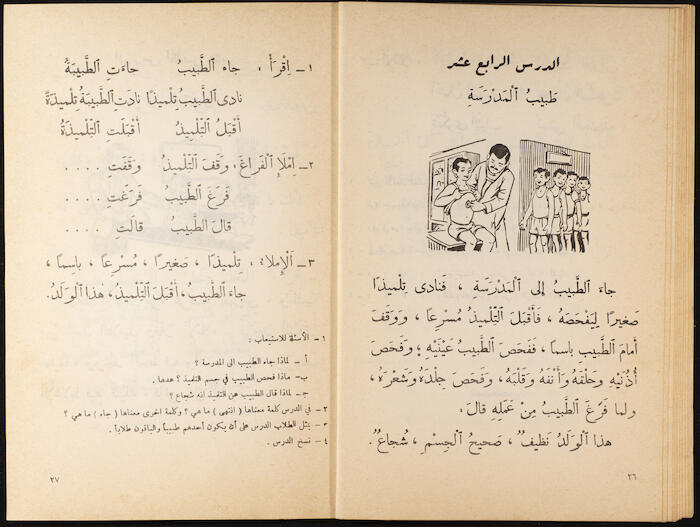 الدرس الرابع عشر
طَبيبُ ٱلْمَدْرَسَةِ
جاءَ ٱلطَّبيبُ إلى ٱلْمَدْرَسَةِ ، فَنادى تِلْميذًا
صَغيرًا لِيَفْحَصَهُ ، فَأَقْبَلَ ٱلتِّلْميذُ مُسْرِعًا ، وَوَقَفَ
أَمامَ ٱلطَّبيبِ باسِمًا ، فَفَحَصَ ٱلطَّبيبُ عَيْنَيْهِ ، وَفَحَصَ
أُذُنَيْهِ وَحَلْقَهُ وَأَنْفَهُ وَقَلْبَهُ ، وَفَحَصَ جِلْدَهُ وَشَعْرَهُ ،
ولما فَرَغَ ٱلطَّبيبُ مِنْ عَمَلِهِ قالَ :
هذا ٱلْوَلَدُ نَظيفٌ ، صَحيحُ ٱلْجِسْمِ ، شُجاعٌ .
٢٦
١ ــ اِقْرَأْ ، جاءَ ٱلطَّبيبُ جاءَتِ ٱلطَّبيبَةُ
نادى ٱلطَّبيبُ تِلْميذًا نادَتِ ٱلطَّبيبَةُ تِلْميذَةً
أَقْبَلَ ٱلتِّلْميذُ أَقْبَلَتِ ٱلتِّلْميذَةُ
٢ ــ اِمْلَإِ ٱلْفَراغَ ، وَقَفَ ٱلتِّلْميذُ وَقَفَتِ . . . .
فَرَغَ ٱلطَّبيبُ فَرَغَتِ . . . .
قالَ ٱلطَّبيبُ قالَتِ . . . .
٣ ــ اَلْإِملاءُ ، تِلْميذًا ، صَغيرًا ، مُسْرِعًا ، باسِمًا ،
جاءَ ٱلطَّبيبُ ، أَقْبَلَ ٱلتِّلْميذُ ، هٰذا ٱلْوَلَدُ .
١ ــ الأسئلة للاستيعاب :
أ ــ لماذا جاء الطبيب الى المدرسة ؟
ب ــ ماذا فحص الطبيب في جسم التلميذ ؟ عدها .
جـ ــ لماذا قال الطبيب عن التلميذ انه شجاع ؟
٢ ــ في الدرس كلمة معناها ( انتهى ) ما هي ؟ وكلمة اخرى معناها ( جاء ) ما هي ؟
٣ ــ يمثل الطلاب الدرس على أن يكون أحدهم طبيباً والباقون طلاباً .
٤ ــ نسخ الدرس .
٢٧